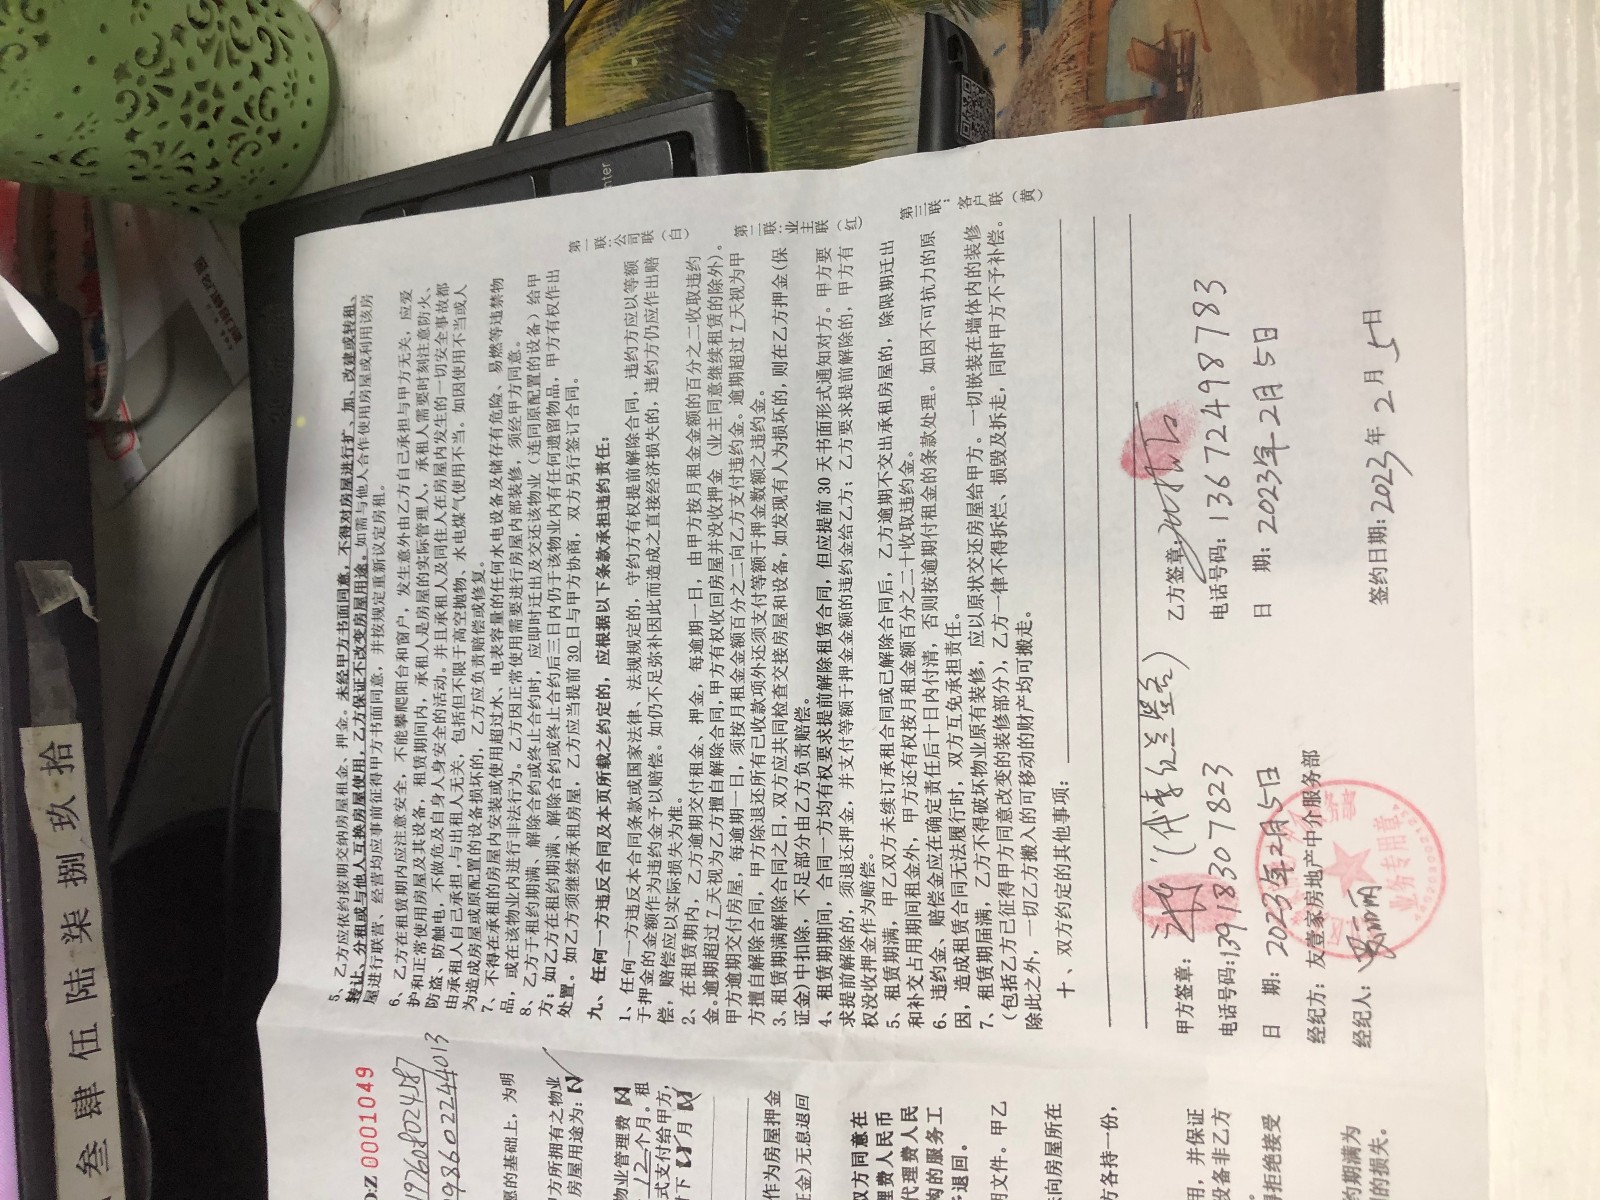 5、乙方应依约按期交纳房屋租金、押金。未经甲方书面同意，不得对房屋进行扩、加、改建或转租、
转让、分租或与他人互换房屋使用，乙方保证不改变房屋用途。如需与他人合作使用房屋或利用该房
屋进行联营、经营均应事前征得甲方书面同意，并按规定重新议定房租。
6、乙方在租赁期内应注意安全，不能攀爬阳台和窗户，发生意外由乙方自己承担与甲方无关，应爱
护和正常使用房屋及其设备，租赁期间内，承租人是房屋的实际管理人，承租人需要时刻注意防火、
防盗、防触电，不做危及自身人身安全的活动。并且承租人及同住人在房屋内发生的一切安全事故都
由承租人自己承担，与出租人无关，包括但不限于高空抛物、水电煤气使用不当。如因使用不当或人
为造成房屋或原配置的设备损坏的，乙方应负责赔偿或修复。
7、不得在承租的房屋内安装或使用超过水、电表容量的任何水电设备及储存有危险、易燃等违禁物
品，或在该物业内进行非法行为。乙方因正常使用需要进行房屋内部装修，须经甲方同意。
8、乙方于租约期满、解除合约或终止合约时，应即时迁出及交还该物业（连同原配置的设备）给甲
方；如乙方在租约期满、解除合约或终止合约后三日内仍于该物业内有任何遗留物品，甲方有权作出
处置。如乙方须继续承租房屋，乙方应当提前30日与甲方协商，双方另行签订合同。
九、任何一方违反合同及本页所载之约定的，应根据以下条款承担违约责任：
1、任何一方违反本合同条款或国家法律、法规规定的，守约方有权提前解除合同，违约方应以等额
于押金的金额作为违约金予以赔偿。如仍不足弥补因此而造成之直接经济损失的，违约方仍应作出赔
偿，赔偿应以实际损失为准。
2、在租赁期内，乙方逾期交付租金、押金，每逾期一日，由甲方按月租金金额的百分之二收取违约
金。逾期超过7天视为乙方擅自解除合同，甲方有权收回房屋并没收押金（业主同意继续租赁的除外）。
甲方逾期交付房屋，每逾期一日，须按月租金金额百分之二向乙方支付违约金。逾期超过7天视为甲
方擅自解除合同，甲方除退还所有已收款项外还须支付等额于押金数额之违约金。
3、租赁期满解除合同之日，双方应共同检查交接房屋和设备，如发现有人为损坏的，则在乙方押金（保
证金）中扣除，不足部分由乙方负责赔偿。
4、租赁期期间，合同一方均有权要求提前解除租赁合同，但应提前30天书面形式通知对方。甲方要
求提前解除的，须退还押金，并支付等额于押金金额的违约金给乙方；乙方要求提前解除的，甲方有
权没收押金作为赔偿。
5、租赁期满，甲乙双方未续订承租合同或已解除合同后，乙方逾期不交出承租房屋的，除限期迁出
和补交占用期间租金外，甲方还有权按月租金额百分之二十收取违约金。
6、违约金、赔偿金应在确定责任后十日内付清，否则按逾期付租金的条款处理。如因不可抗力的原
因，造成租赁合同无法履行时，双方互免承担责任。
7、租赁期届满，乙方不得破坏物业原有装修，应以原状交还房屋给甲方。一切嵌装在墙体内的装修
（包括乙方已征得甲方同意改变的装修部分），乙方一律不得拆烂、损毁及拆走，同时甲方不予补偿。
除此之外，一切乙方搬入的可移动的财产均可搬走。
十、双方约定的其他事项：
甲方签章：
乙方签章：
电话号码：13918307823
电话号码：13672498783
日 期：2023年2月5日
日 期：2023年2月5日
经纪方：友壹家房地产中介服务部
经纪人：
签约日期：2023年2月5日
业务专用章
第一联：公司联（白）
第二联：业主联（红）
第三联：客户联（黄）
O:Z 0001049
愿的基础上，为明
方所拥有之物业
房屋用途为：
物业管理费
12个月。租
式支付给甲方，
作为房屋押金
证金）无息退回
双方同意在
理费人民币
代理费人民
构的服务工
退回。
文件。甲乙
向房屋所在
方各持一份，
用，并保证
设备非乙方
得拒绝接受
约期满为
的损失。
叁 肆 伍 陆 柒 捌 玖 拾
nter